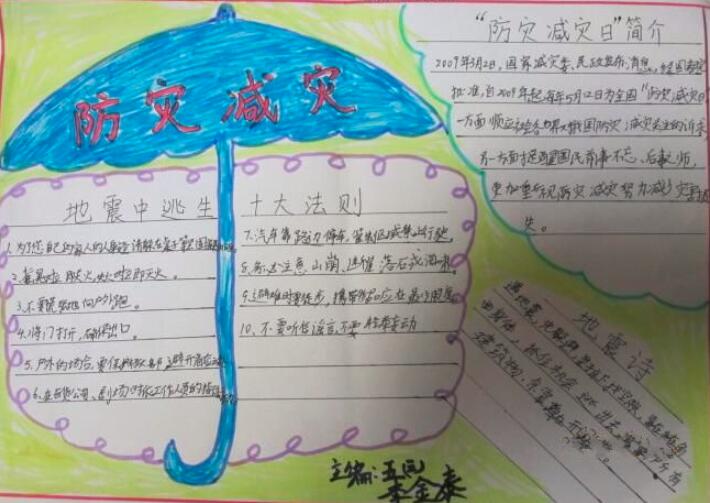 防灾减灾
“防灾减灾日”简介
2009年3月2日，国家减灾委、民政部发布消息，经国务院
批准，自2009年起每年5月12日为全国“防灾减灾日
一方面顺应社会各界对我国防灾减灾关注的诉求
另一方面提醒国民前事不忘、后事之师，
更加重视防灾减灾努力减少灾害损
失。
地震中逃生 十大法则
1.为了您自己和家人的人身安全请躲在桌子等坚固家具
2.摇晃时立即关火，失火时立即灭火。
3.不要慌张地向户外跑。
4.将门打开，确保出口。
5.户外的场合，要保护好头部，避开危险
6.在百货公司、剧场时依工作人员的指示
7.汽车靠路边停车，管制区域禁止行驶。
8.务必注意山崩、断崖落石或海啸。
9.避难时要徒步，携带物品应在最少限度。
10.不要听信谣言，不要轻举妄动
地震诗
主编：王元
李金泰